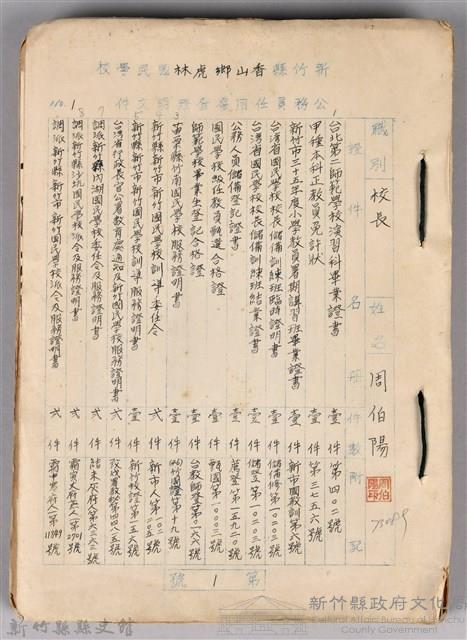 新竹縣香山鄉虎林國民學校
公務員任用審查證明文件
職別 校長 姓名 周伯陽
證件名冊 件數 附記
台北第二師範學校演習科畢業證書 壹件 第四〇二號
甲種本科正教員免許狀 壹件 第三七五六號
新竹市三十五年度小學教員暑期講習班畢業證書 壹件 新市國教訓第六號
台灣省國民學校校長儲備訓練班臨時證明書 壹件 儲備修第一〇〇三號
台灣省國民學校校長儲備訓練班結業證書 壹件 儲登第一〇二三號
公務人員儲備登記證書 壹件 第一五九二〇號
國民學校級任教員甄選合格證 壹件 甄國第一〇〇三號
師範學校畢業生登記合格證 壹件 台教師登字第〇一六六號
苗栗縣竹南國民學校服務證明書 壹件 竹國證字第十九號
新竹縣新竹市新竹國民學校訓導委任令 壹件 新市人第二〇五號
新竹縣新竹市新竹國民學校訓導服務證明書 壹件 新竹國證第一五六號
台灣省行政長官公署教育處通知及新竹國民學校服務證明書 弍件 致戌署教第四四八五號
調派新竹縣內湖國民學校委任令及服務證明書 弍件
調派新竹縣沙坑國民學校派令及服務證明書 弍件 第2901號
調派新竹縣新竹市新竹國民學校派令及服務證明書 弍件 府人第11899號
第1號
新竹縣縣史館
新竹縣政府文化局
Cultural Affairs Bureau of Hsinchu
County Government